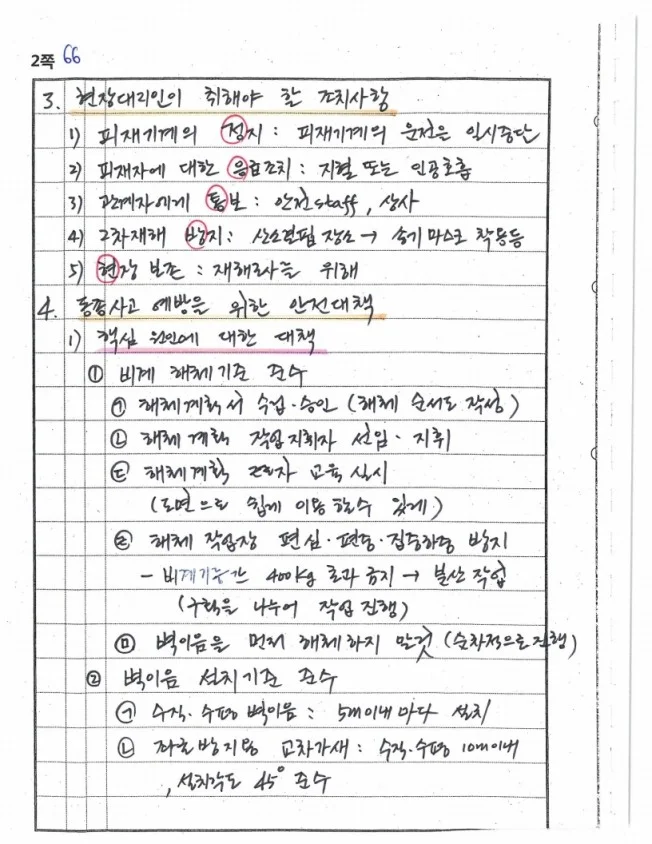 2쪽 66
3. 현장대리인이 취해야 할 조치사항
1) 피재기계의 정지 : 피재기계의 운전은 일시중단
2) 피재자에 대한 응급조치 : 지혈 또는 인공호흡
3) 관계자에게 통보 : 안전staff, 상사
4) 2차재해 방지 : 산소결핍 장소 → 송기마스크 착용등
5) 현장 보존 : 재해조사를 위해
4. 동종사고 예방을 위한 안전대책
1) 핵심 원인에 대한 대책
① 비계 해체기준 준수
㉠ 해체계획서 수립·승인 (해체 순서도 작성)
㉡ 해체 계획 작업지휘자 선임·지휘
㉢ 해체계획 근로자 교육 실시
(도면으로 쉽게 이용할수 있게)
㉣ 해체 작업장 편심·편중·집중하중 방지
- 비계기둥간 400kg 초과 금지 → 분산 작업
(구획을 나누어 작업 진행)
㉤ 벽이음을 먼저 해체하지 말것 (순차적으로 진행)
② 벽이음 설치기준 준수
㉠ 수직·수평 벽이음 : 5m이내 마다 설치
㉡ 좌굴방지용 교차가새 : 수직·수평 10m이내
, 설치각도 45° 준수